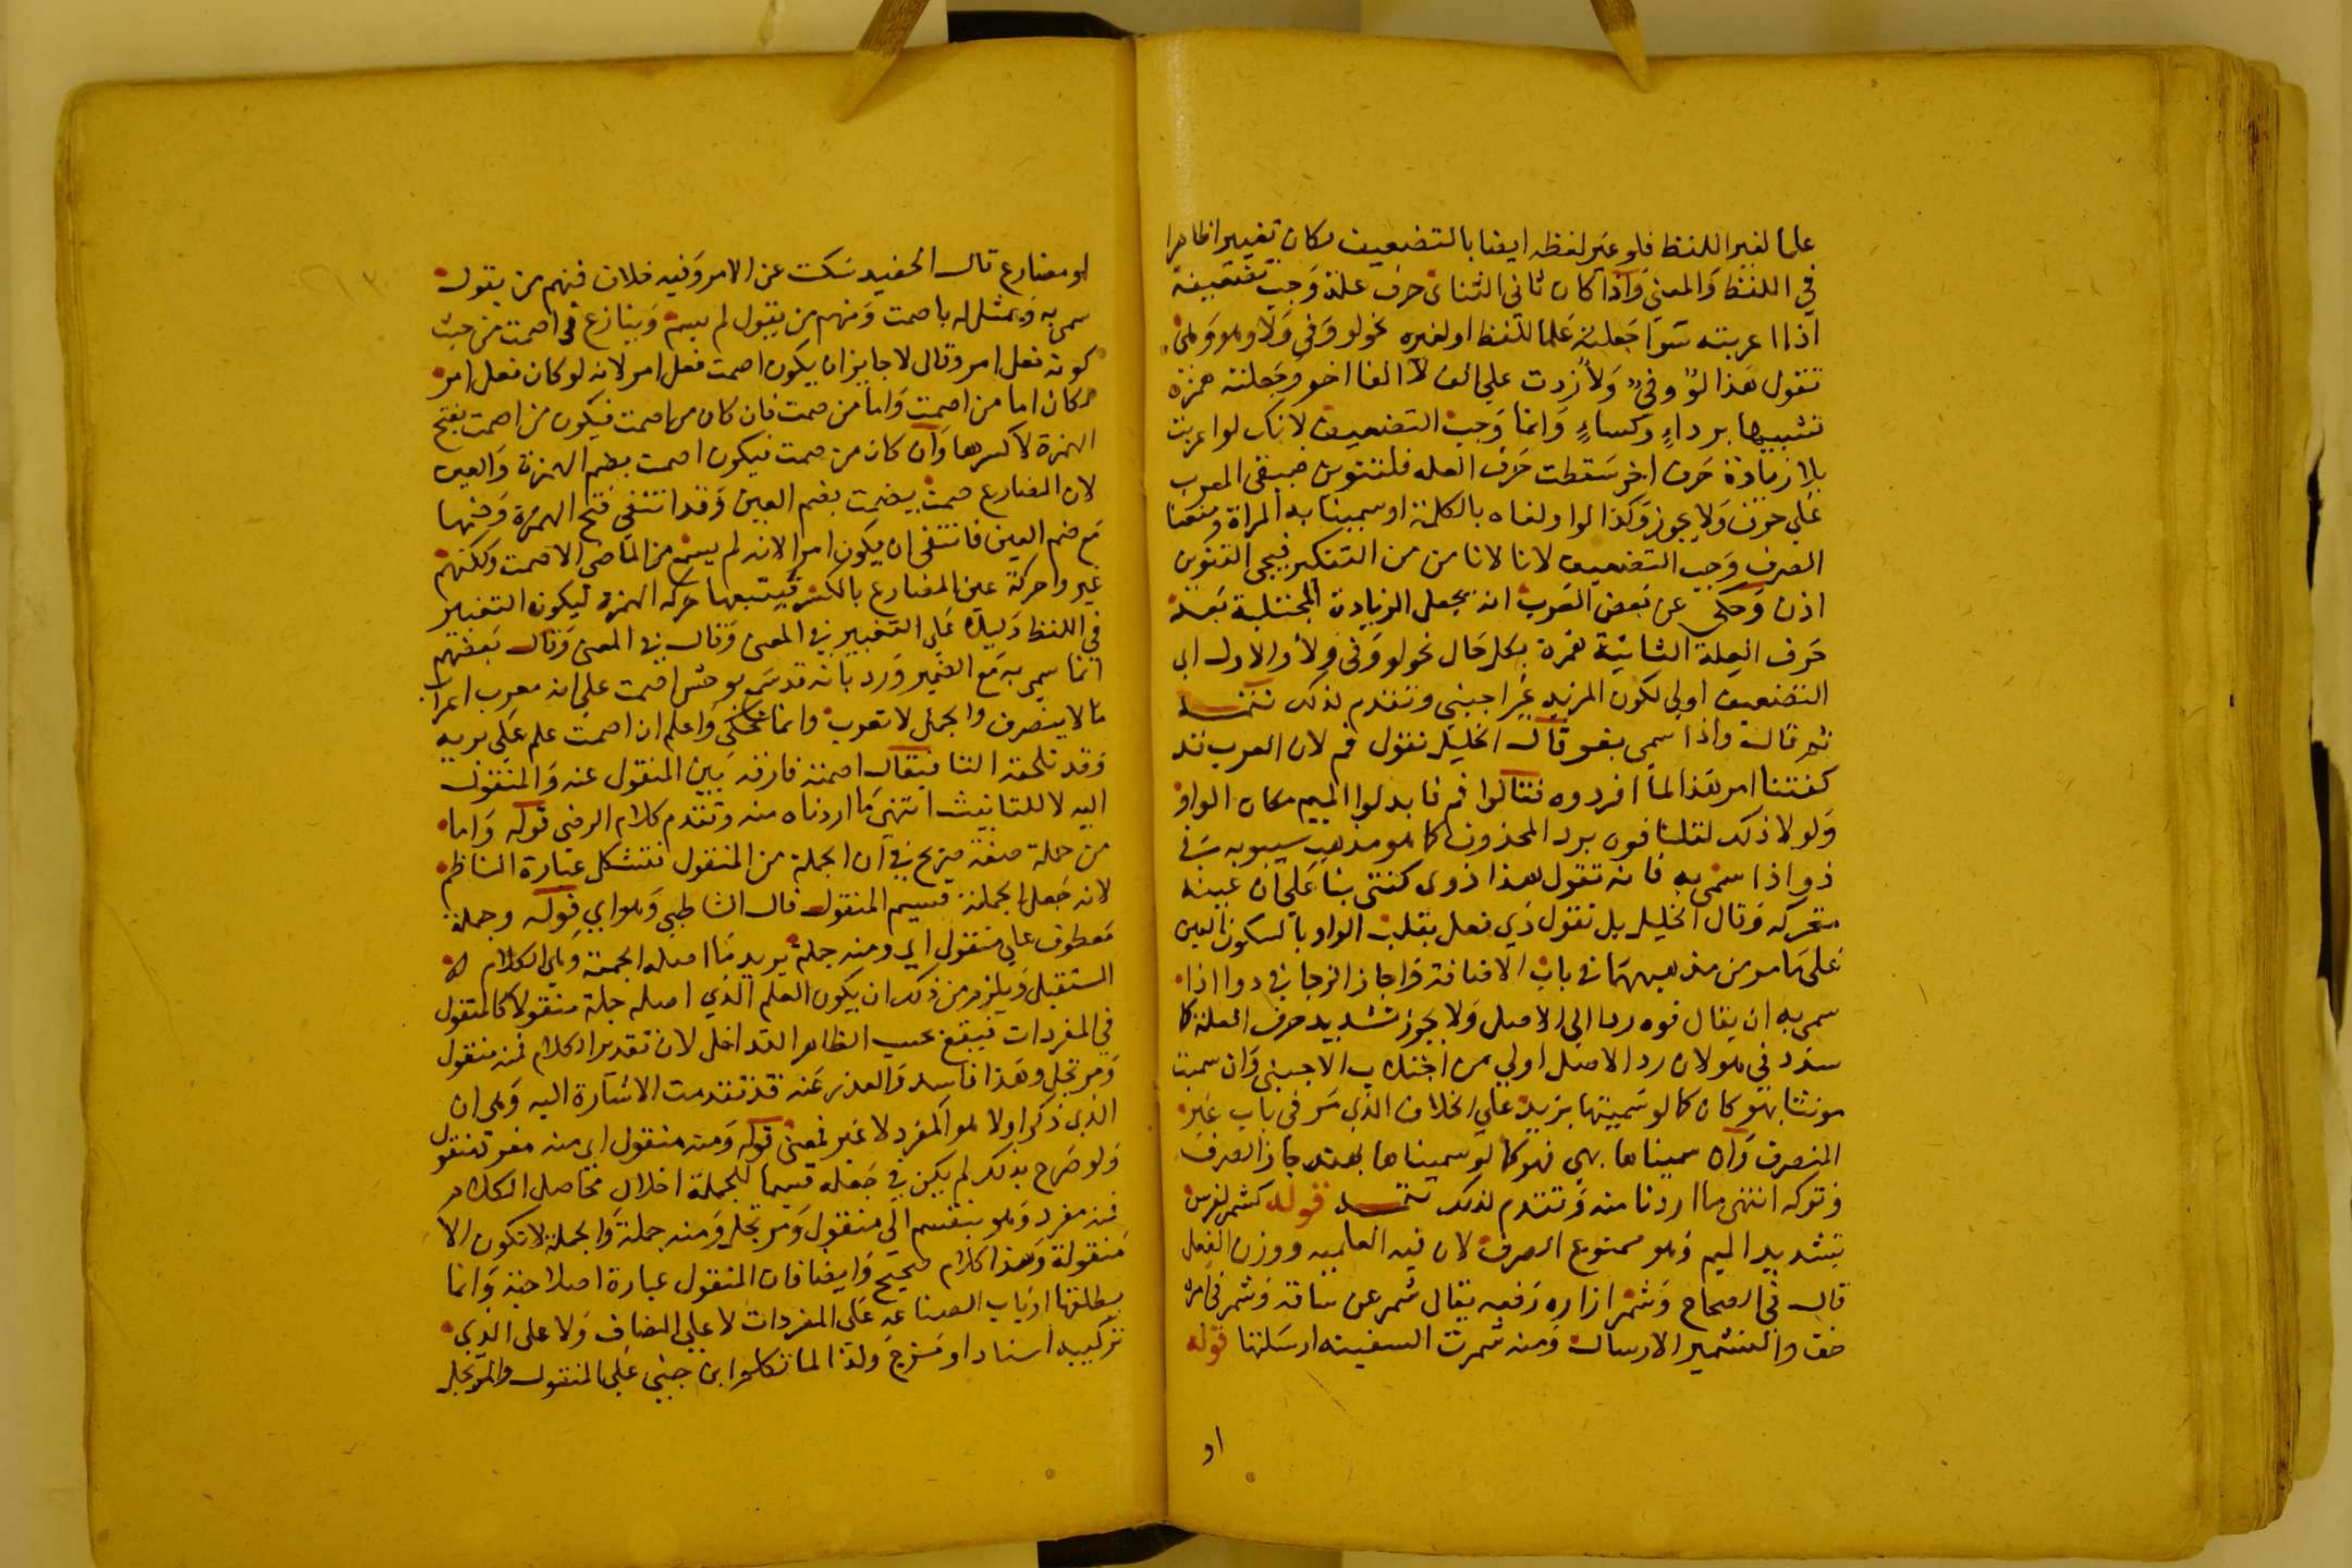 علما لغير اللفظ فلو غير لفظه ايضا بالتضعيف لكان تغييرا ظاهرا
في اللفظ والمعني واذا كان ثاني الثنائي حرف علة وجب تضعيفه
اذا اعربته سوا جعلته علما للفظ او لغيره نحو لو وفي ولا وهو وهي
تقول هذا لوٌّ وفيٌّ ولاءٌ زدت علي الف لا الفا اخر وجعلته همزة
تشبيها برداءٍ وكساءٍ وانما وجب التضعيف لانك لو اعربت
بلا زيادة حرف اخر سقطت حرف العله فلتنوين فيبقي المعرب
علي حرف ولا يجوز وكذا لو اولناه بالكلمة او سمينا به المراة ومنعنا
الصرف وجب التضعيف لانا لانامن من التنكير فيجي التنوين
اذن وحكي عن بعض العرب انه يجعل الزيادة المجتلبة بعد
حرف العلة الثانية همزة بكل حال نحو لو وفي ولا والاول اي
التضعيف اولي لكون المزيد غير اجنبي وتقدم لذلك تتمـــة
ثم قال واذا سمي بفو قال الخليل تقول فم لان العرب قد
كفتنا امر هذا لما افردوه فقالوا فم فابدلوا الميم مكان الواو
ولولا ذلك لقلنا فوه برد المحذوف كما هو مذهب سيبويه في
ذو اذا سمي به فانه تقول هذا ذوى كفتى بنا علي ان عينه
متحركه وقال الخليل بل تقول ذي فعل بقلب الواو با لسكون العين
علي ما مر من مذهبيهما في باب الاضافة واجاز الزجاج في ذو اذا
سمي به ان يقال فوه ردا الي الاصل ولا يجوز تشديد حرف العلة كما
شدد في هو لان رد الاصل اولي من اجتلاب الاجنبي وان سميت
مونثا بهو كان كما لو سميتها بزيد علي الخلاف الذي مر في باب غير
المنصرف وان سميناها بهي فهو كما لو سميناها بهند جاز الصرف
وتركه انتهي ما اردنا منه وتقدم لذلك تتمـــة قوله كشمر لفرس
بتشديد الميم وهو ممنوع الصرف لان فيه العلميه ووزن الفعل
قال في الصحاح وشمر ازاره رفعه يقال شمر عن ساقه وشمر في امره
خف والتشمير الارسال ومنه شمرت السفينه ارسلتها قوله
او
او مضارع قال الحفيد سكت عن الامر وفيه خلاف فمنهم من يقول
سمي به ويمثل له باصمت ومنهم من يقول لم يسم وينازع في اصمت من حيث
كونه فعل امر وقال لا جايز ان يكون اصمت فعل امر لانه لو كان فعل امر
لكان اما من اصمت واما من صمت فان كان من اصمت فيكون من اصمت بفتح
الهمزة لا كسرها وان كان من صمت فيكون اصمت بضم الهمزة والعين
لان المضارع صمت يصمت بضم العين وقد انتفي فتح الهمزة وضمها
مع ضم العين فانتفي ان يكون امرا لانه لم يسم من الماضي الا صمت ولكنهم
غيروا حركة عين المضارع بالكسر فيتبعها حركة الهمزة ليكون التغيير
في اللفظ دليلا علي التغيير في المعني وقال في المعني وقال بعضهم
انما سمي به مع الضمير ورد بانه قد سمي بوحش اصمت علي انه معرب اعراب
ما لا ينصرف والجمل لا تعرب وانما تحكي واعلم ان اصمت علم علي برية
وقد تلحقه التا فيقال اصمتة فارقه بين المنقول عنه والمنقول
اليه لا للتانيث انتهي ما اردناه منه وتقدم كلام الرضي قوله واما
من جملة صفة صريح في ان الجملة من المنقول فتشكل عبارة الناظم
لانه جعل الجملة قسيم المنقول قال الشاطبي وهو اي قوله وجملة
معطوف علي منقول اي ومنه جملة يريد ما اصله الجملة وهي الكلام لا
المستقبل ويلزم من ذلك ان يكون العلم الذي اصله جملة منقولا كالمنقول
في المفردات فيقع بحسب الظاهر التداخل لان تقدير الكلام فمنه منقول
ومرتجل وهذا فاسد والعذر عنه قد تقدمت الاشارة اليه وهي ان
الذي ذكر اولا هو المفرد لا غير فمعني قوله ومنه منقول اي منه مفرد منقول
ولو صرح بذلك لم يكن في جعله قسيما للجملة اخلال فحاصل الكلام
فمنه مفرد وهو ينقسم الي منقول ومرتجل ومنه جملة والجملة لا تكون الا
منقولة وهذا كلام صحيح وايضا فان المنقول عبارة اصلاحية وانما
يطلقها ارباب الصناعه علي المفردات لا علي المضاف ولا علي الذي
تركيبه اسناد او مزج ولذا لما تكلم ابن جني علي المنقول والمرتجل